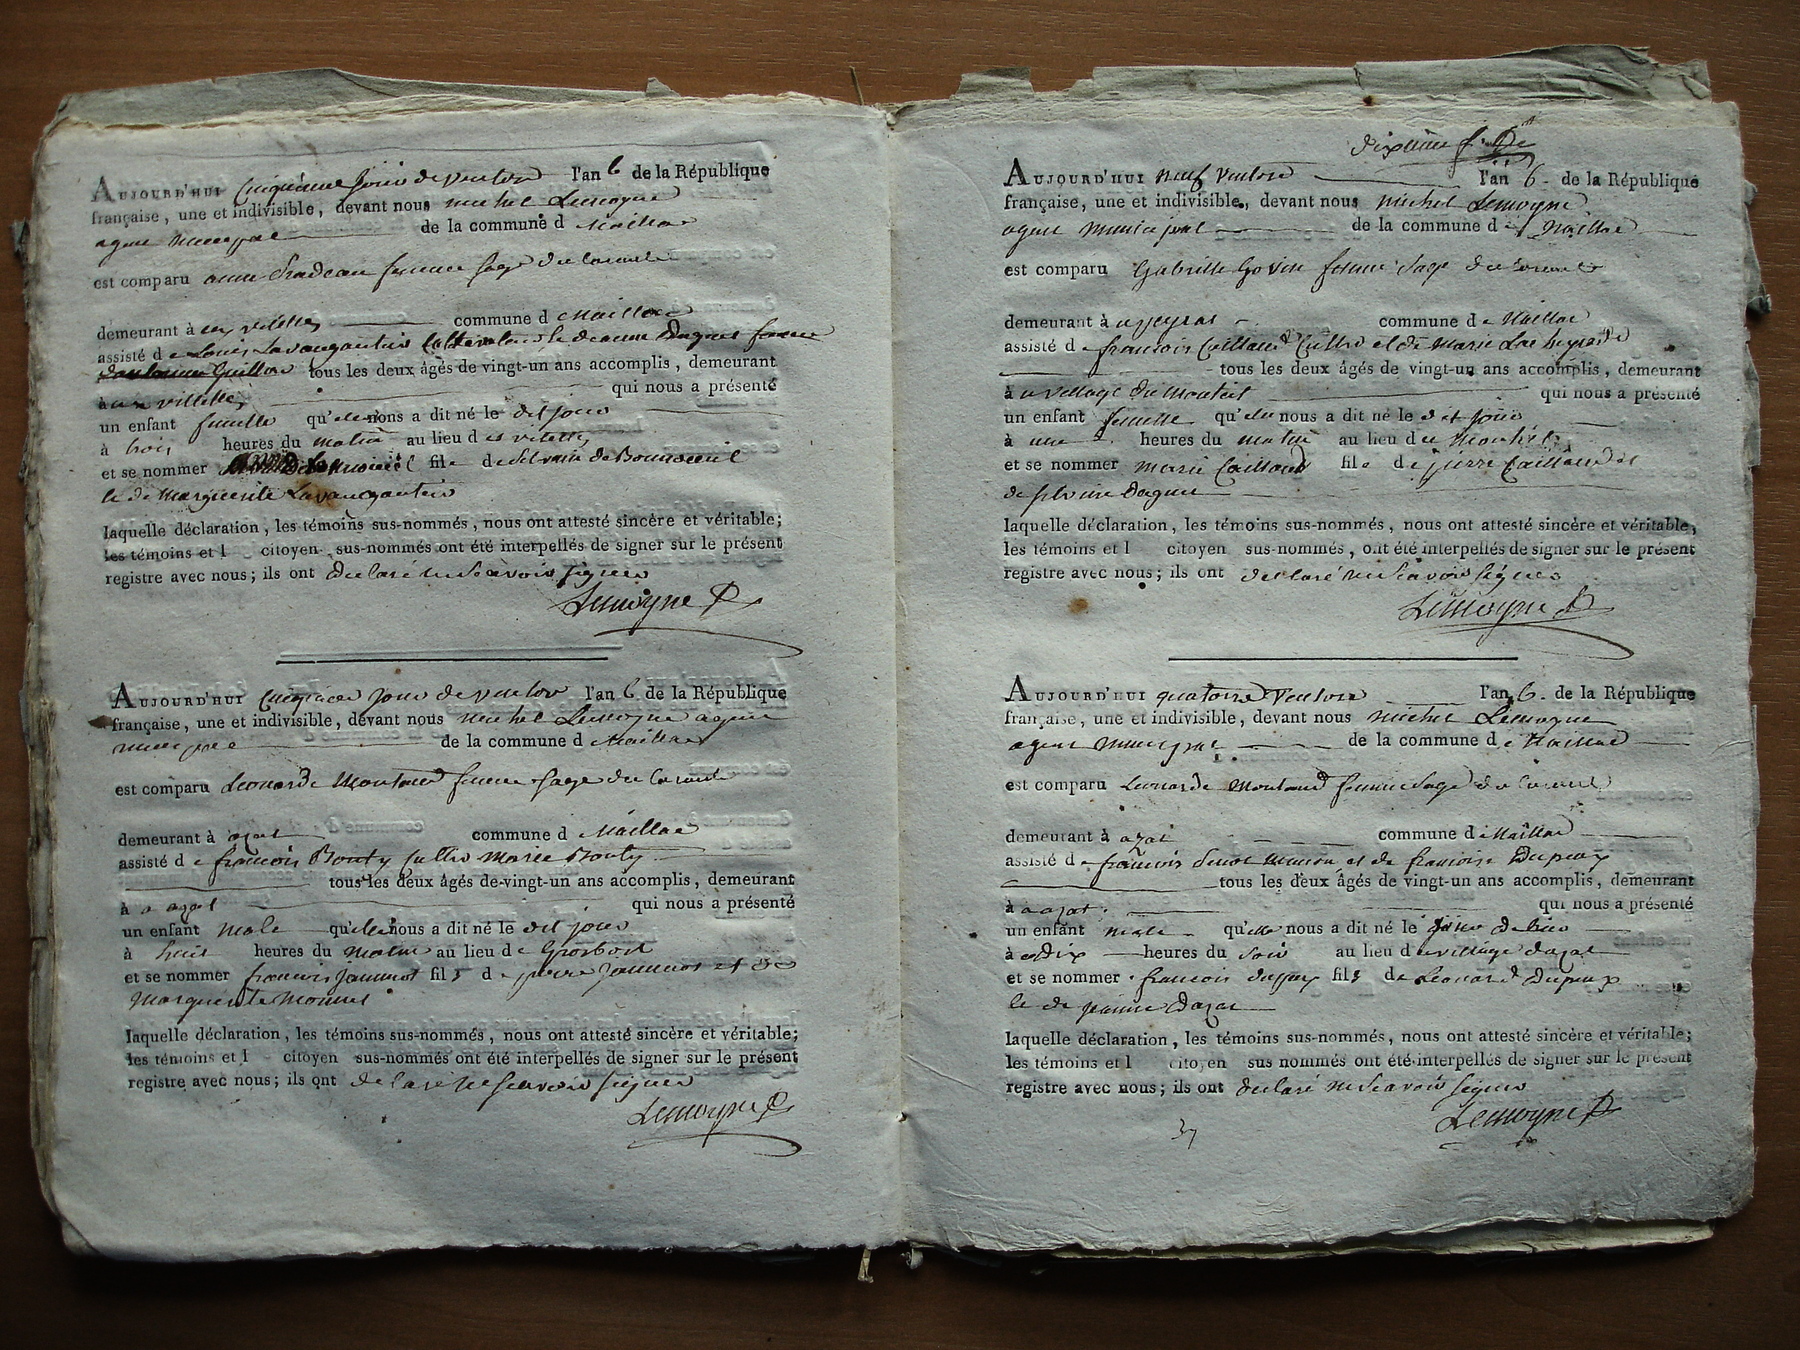 AUJOURD'HUI Cinquieme Jour de ventose l'an 6 de la République
française, une et indivisible, devant nous michel Lemoyne
agent municipal de la commune d Maillac
est comparu anne femme sage du
demeurant à villette commune d Maillac
assisté de Louis Lavaugautier et de anne Dagues femme
Guillon tous les deux âgés de vingt-un ans accomplis, demeurant
à villette qui nous a présenté
un enfant femelle qu'elle nous a dit né le dit jour
à trois heures du matin au lieu d es villette
et se nommer fil e de Silvain de Bonnoeuil
et de Marguerite Lavaugautier
laquelle déclaration, les témoins sus-nommés, nous ont attesté sincère et véritable;
les témoins et l citoyen sus-nommés ont été interpellés de signer sur le présent
registre avec nous; ils ont declaré ne scavoir signer
Lemoyne
AUJOURD'HUI jour de ventos l'an 6 de la République
française, une et indivisible, devant nous michel Lemoyne agent
municipal de la commune d Maillac
est comparu Leonarde Montaud femme sage du
demeurant à azat commune d Maillac
assisté de francois Bonty Marie Bonty
tous les deux âgés de vingt-un ans accomplis, demeurant
à a azat qui nous a présenté
un enfant male qu'elle nous a dit né le dit jour
à huit heures du matin au lieu de Grosbost
et se nommer francois Jammot fils de pierre Jammot et de
Marguerite
laquelle déclaration, les témoins sus-nommés, nous ont attesté sincère et véritable;
les témoins et l citoyen sus-nommés ont été interpellés de signer sur le présent
registre avec nous; ils ont declaré ne scavoir signer
Lemoyne
dixieme f.
AUJOURD'HUI neuf Ventose l'an 6. de la République
française, une et indivisible, devant nous michel Lemoyne
agent municipal de la commune de Maillac
est comparu Gabrielle Govin femme sage du
demeurant à commune de Maillac
assisté de francois Caillaud et de Marie
tous les deux âgés de vingt-un ans accomplis, demeurant
à u village du Monteil qui nous a présenté
un enfant femelle qu'elle nous a dit né le dit jour
à une heures du matin au lieu du Monteil
et se nommer marie Caillaud fil e de pierre Caillaud et
de silvine Dagues
laquelle déclaration, les témoins sus-nommés, nous ont attesté sincère et véritable,
les témoins et l citoyen sus-nommés, ont été interpellés de signer sur le présent
registre avec nous; ils ont declaré ne scavoir signer
Lemoyne
AUJOURD'HUI quatorze Ventose l'an 6. de la République
française, une et indivisible, devant nous michel Lemoyne
agent municipal de la commune de Maillac
est comparu Leonarde Montaud femme sage du
demeurant à azat commune d Maillac
assisté de francois et de francoise Dupeux
tous les deux âgés de vingt-un ans accomplis, demeurant
à a azat qui nous a présenté
un enfant male qu'elle nous a dit né le
à dix heures du soir au lieu d u village dazat
et se nommer francois fils de Leonard Dupeux
et de jeanne Dazat
laquelle déclaration, les témoins sus-nommés, nous ont attesté sincère et véritable;
les témoins et l citoyen sus nommés ont été interpellés de signer sur le présent
registre avec nous; ils ont declaré ne scavoir signer
Lemoyne
37